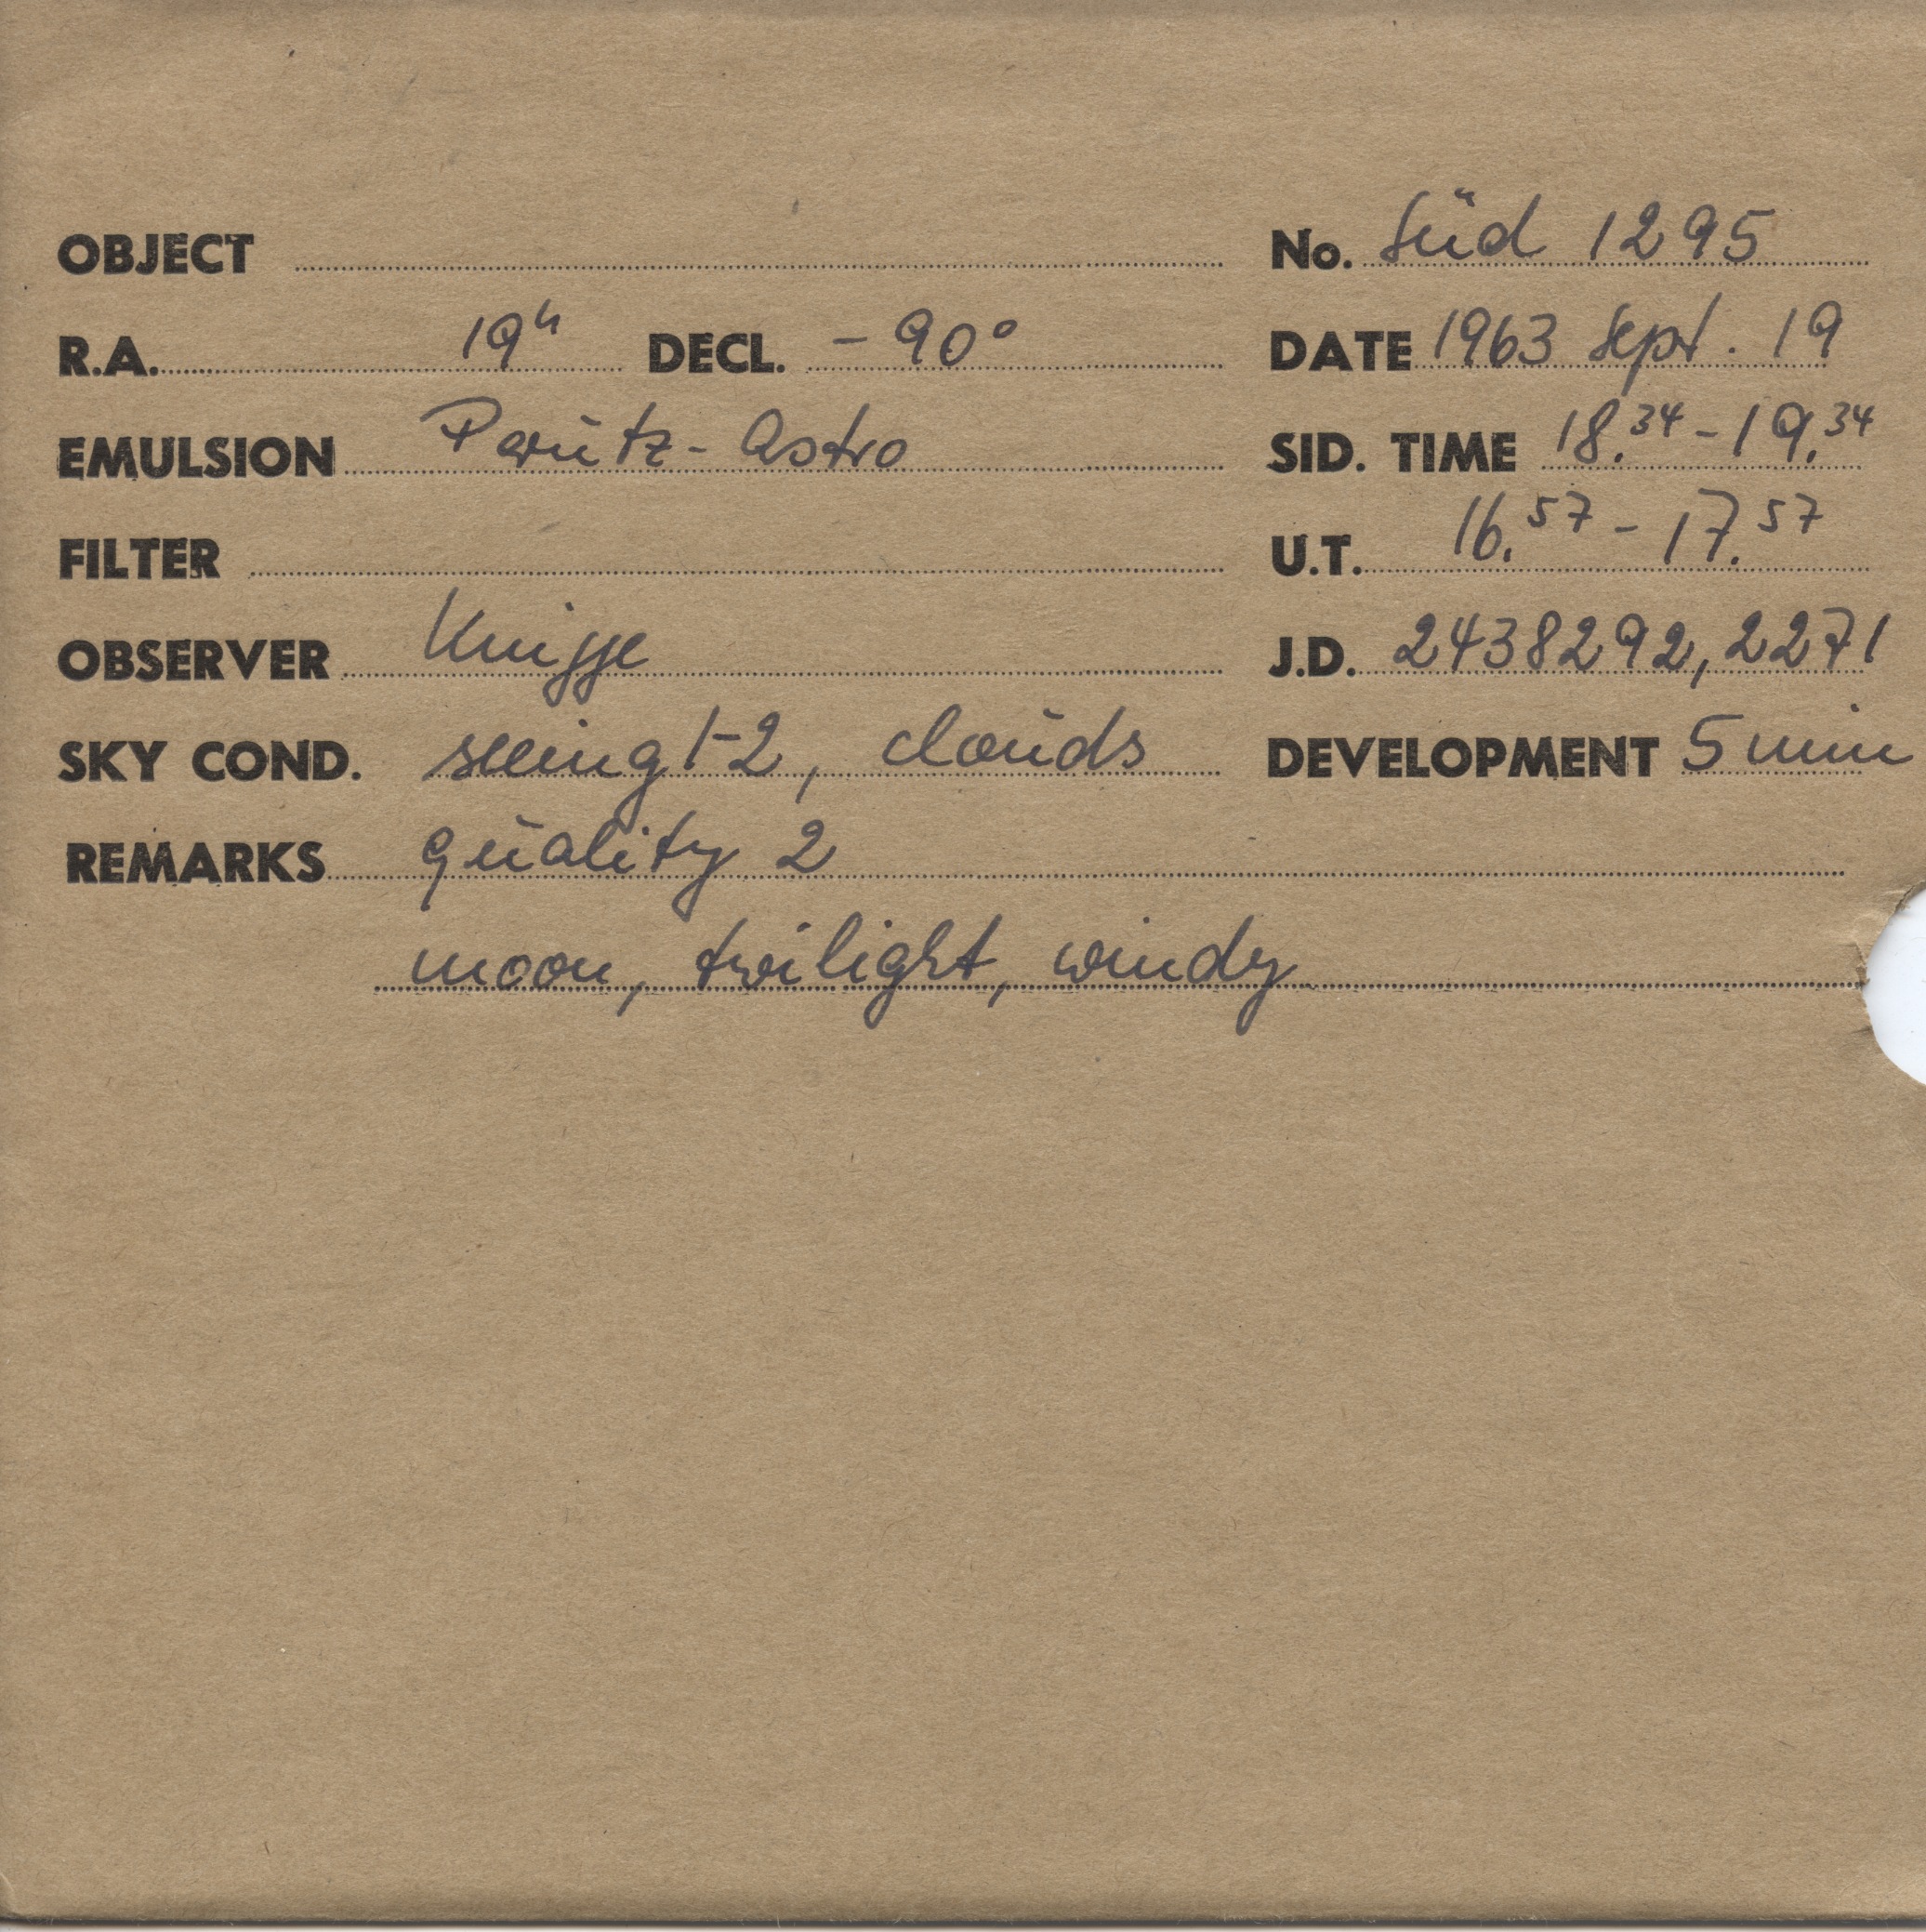 OBJECT No. Süd 1295
R.A. 19h DECL. -90°  DATE 1963 Sept. 19
EMULSION Perutz-Astro SID. TIME 18.34 - 19.34
FILTER U.T. 16.57 - 17.57
OBSERVER Knigge J.D. 2438292,2271
SKY COND. seeing 1-2, clouds DEVELOPMENT 5 min
REMARKS quality 2
moon, twilight, windy